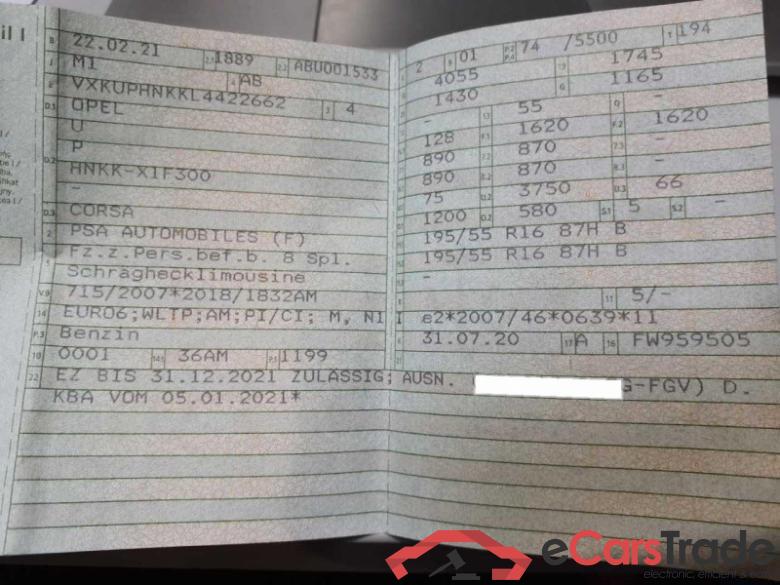 il I
B 22.02.21 2.1 1889 2.2 ABU001533
J M1 4 AB
E VXKUPHNKKL4422662 3 4
D.1 OPEL
U
P
D.2 HNKK-X1F300
-
D.3 CORSA
2 PSA AUTOMOBILES (F)
Fz.z.Pers.bef.b. 8 Spl.
Schräghecklimousine
V.9 715/2007*2018/1832AM
14 EURO6;WLTP;AM;PI/CI; M, N1 I
P.3 Benzin
10 0001 14.1 36AM P.1 1199
22 EZ BIS 31.12.2021 ZULÄSSIG; AUSN. G-FGV) D.
KBA VOM 05.01.2021*
L 2 9 01 P.2 P.4 74 /5500 T 194
4055 1745
1430 G 1165
- 55 -
128 F.1 1620 F.2 1620
890 7.2 870 7.3 -
890 8.2 870 8.3 -
75 U.2 3750 U.3 66
1200 O.2 580 S.1 5 S.2 -
195/55 R16 87H B
195/55 R16 87H B
-
11 5/-
e2*2007/46*0639*11
6 31.07.20 17 A 16 FW959505
21
eCarsTrade
electronic, efficient &